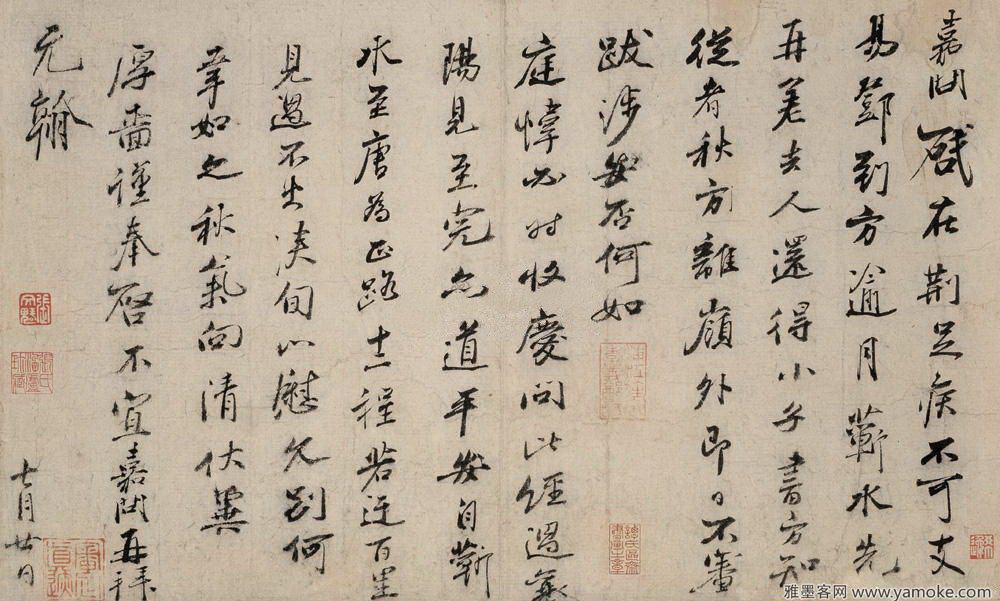 嘉問啟在荆足疾不可支
易鄧到方逾月蘄水先
再差去人還得小子書方知
從者秋方離嶺外即日不審
跋涉安否何如
庭幃必時收慶問此經過襄
陽見至完亦道平安自蘄
水至唐為正路十一程若迂百里
見過不出浹旬以慰久别何
幸如之秋氣向清伏冀
厚嗇謹奉啓不宣嘉問再拜
元翰
七月廿日
雅墨客网 www.yamoke.com